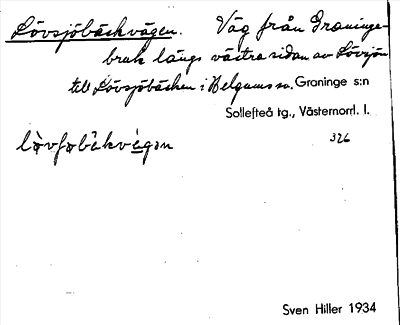 Lövsjöbäckvägen. Väg från Graninge-
bruk längs västra sidan av Lövsjön
till Lövsjöbäcken i Helgums sn. Graninge s:n
Sollefteå tg., Västernorrl. l.
326
Sven Hiller 1934